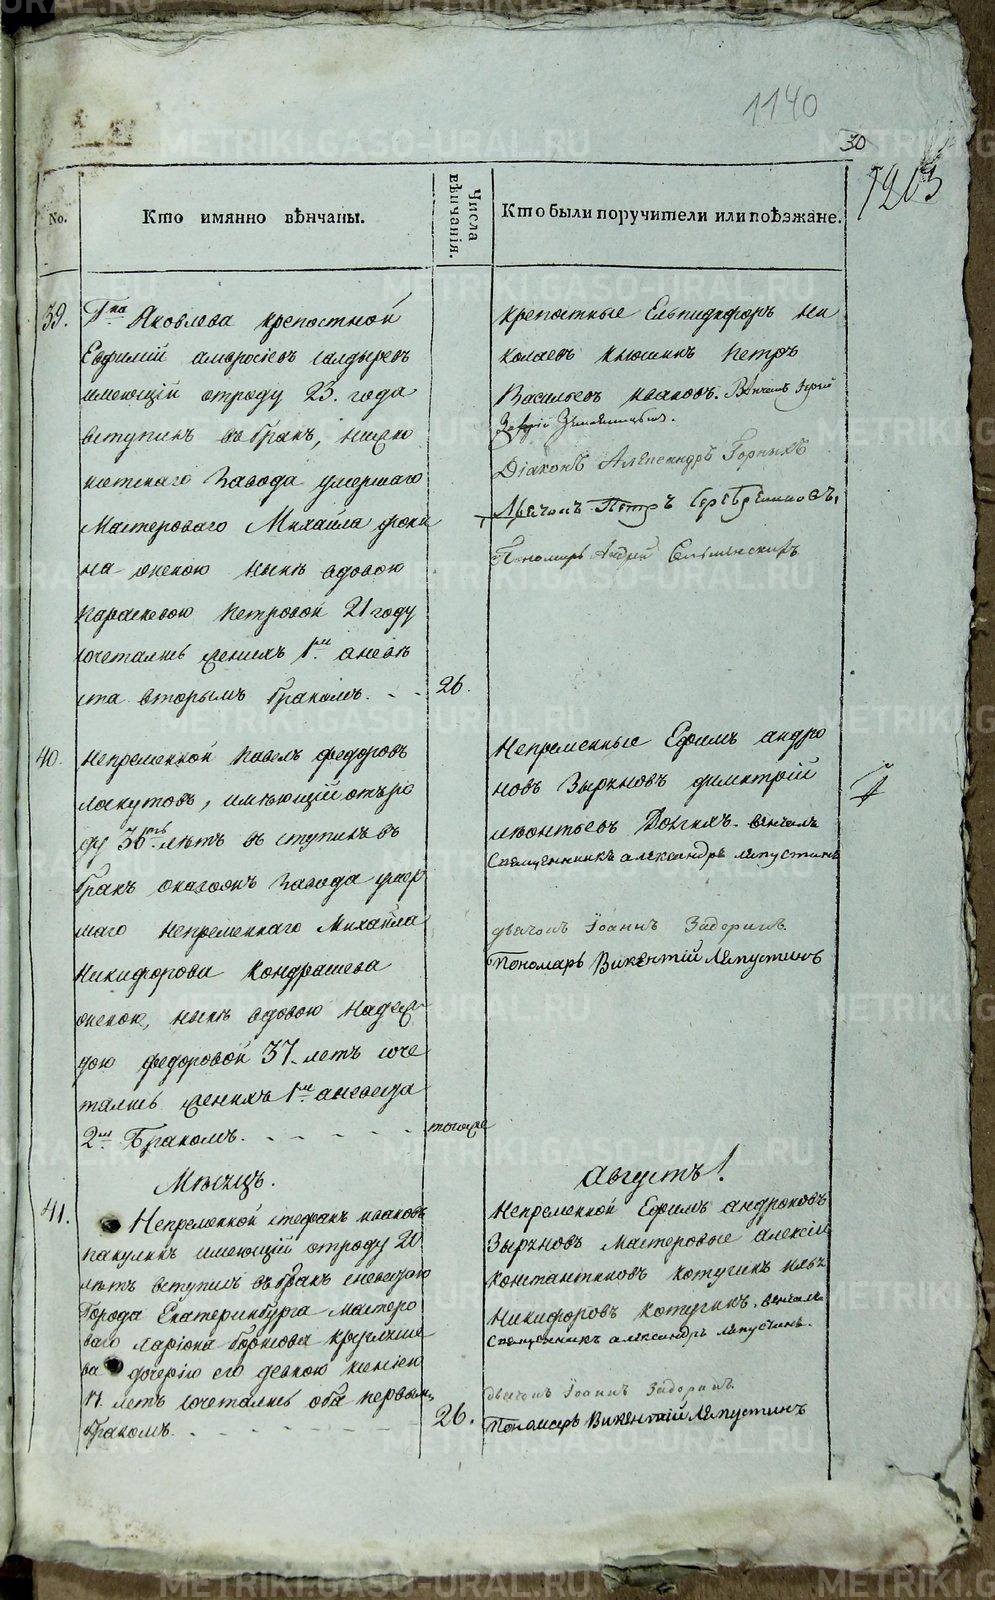 1140
30
1203
No.
Кто имянно вѣнчаны.
Числа вѣнчанія.
Кто были поручители или поѣзжане.
39.
Гна Яковлева крепостной
Евфимій амвросіевъ
имеющій отроду 23. года
вступилъ въ бракъ,
завода умершаго
Мастероваго Михайла
на женою нынѣ вдовою
параскевою петровой 21 году
сочетались женихъ 1м. а невѣ
ста вторымъ бракомъ.
26.
крепостные Елпидифоръ ни
колаевъ петръ
Васильевъ ивановъ. Вѣнчалъ Іерей
Діаконъ Александръ Горныхъ
Дьячокъ Петръ Серебрениковъ,
Пономарь Андрей
40.
Непременной павелъ федоровъ
лоскутовъ, имѣющій отъро
ду 36ть лѣтъ въ ступилъ въ
бракъ завода умер
шаго непременнаго Михайла
Никифорова Кондрашева
женою, нынѣ вдовою надеж
дою федоровой 37 летъ соче
тались женихъ 1м. а невеста
2м. Бракомъ.
тогоже
Непременные Ефимъ андро
новъ Зыряновъ димитрій
леонтьевъ Долгихъ. венчалъ
Священникъ александръ ляпустинъ
дьячокъ Іоаннъ Задоринъ.
Пономарь Викентій Ляпустинъ
Мѣсяцъ.
Августъ!
41.
Непременной стефанъ ивановъ
пакулинъ имеющій отроду 20
лѣтъ вступилъ въ бракъ сневестою
Города Екатеринбурга мастеро
ваго Ларіона борисова
ва дочерію его девкою
17 летъ сочетались оба первымъ
бракомъ.
26.
Непременной Ефимъ андроновъ
Зыряновъ Мастеровые алексѣй
константиновъ котугинъ илья
Никифоровъ котугинъ. венчалъ
Священникъ александръ ляпустинъ.
дьячокъ Іоаннъ Задоринъ
Пономарь Викентій Ляпустинъ
METRIKI.GASO-URAL.RU